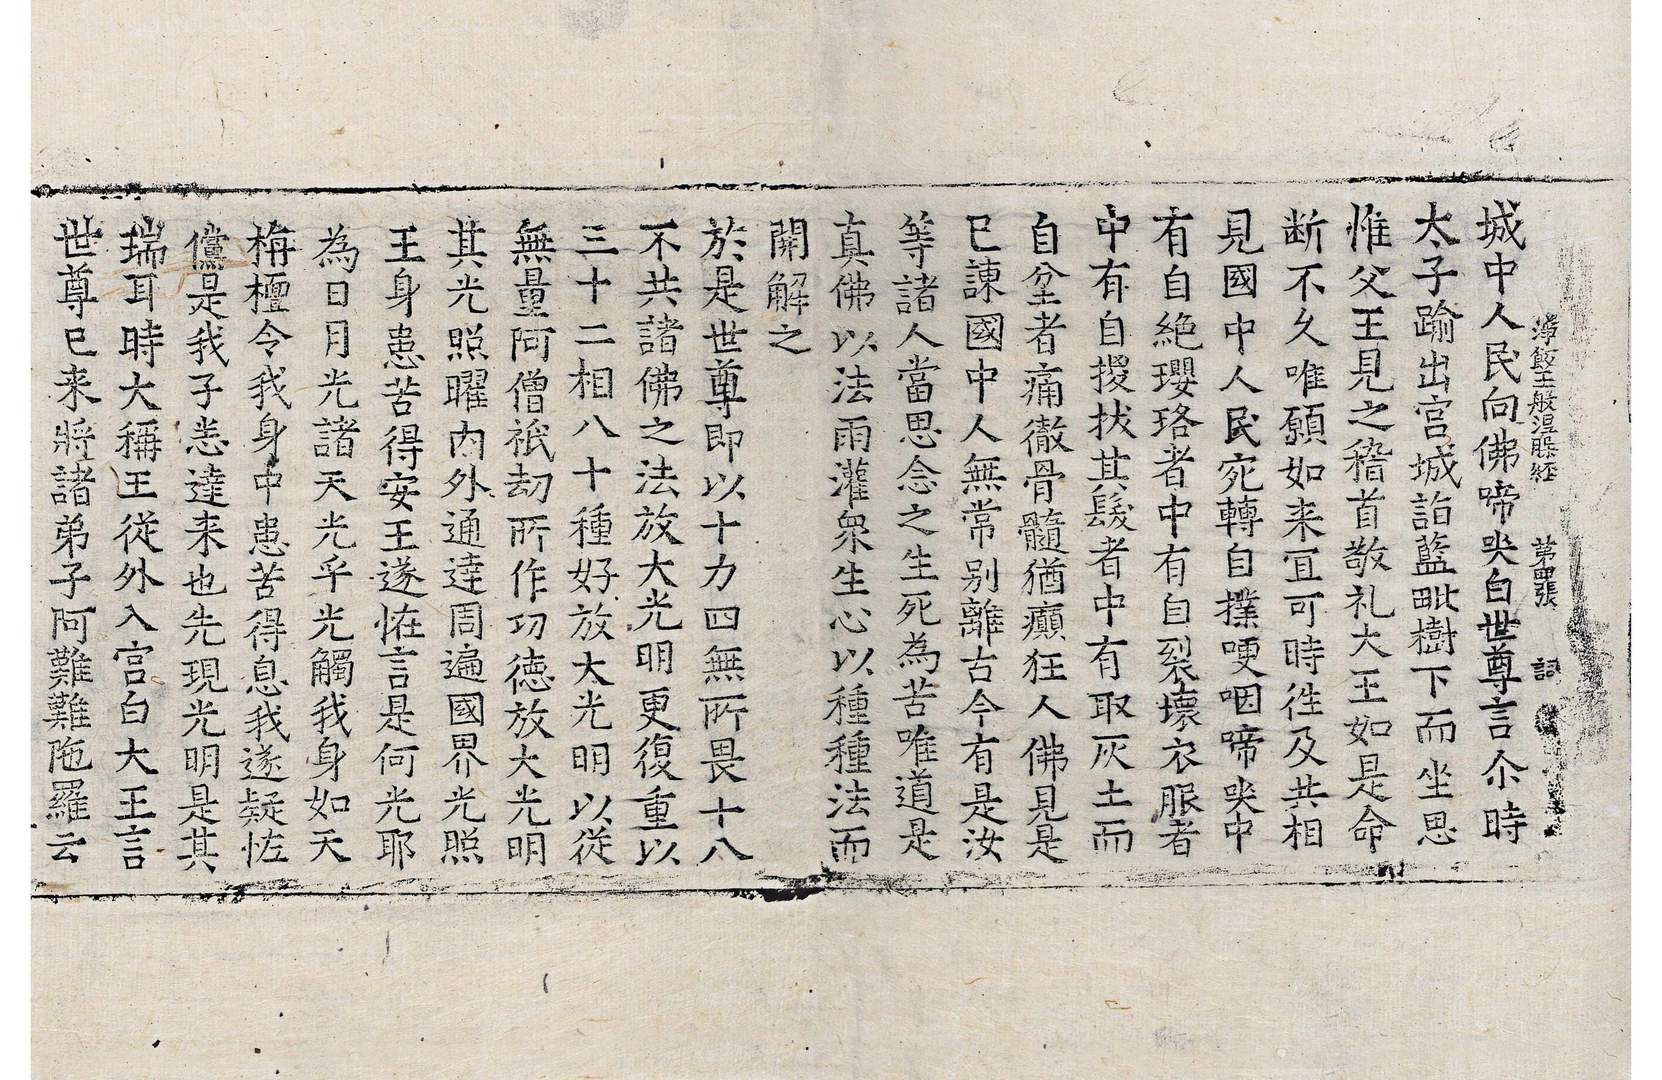 淨飯王般涅槃經 第四張 詞
城中人民向佛啼哭白世尊言尒時
太子踰出宮城詣藍毗樹下而坐思
惟父王見之稽首敬礼大王如是命
断不久唯願如来冝可時徃及共相
見國中人民宛轉自撲哽咽啼哭中
有自絶瓔珞者中有自裂壞衣服者
中有自撥拔其髮者中有取灰土而
自坌者痛徹骨髓猶癲狂人佛見是
已諫國中人無常别離古今有是汝
等諸人當思念之生死為苦唯道是
真佛以法雨灌衆生心以種種法而
開解之
於是世尊即以十力四無所畏十八
不共諸佛之法放大光明更復重以
三十二相八十種好放大光明以從
無量阿僧祇劫所作功徳放大光明
其光照曜内外通達周遍國界光照
王身患苦得安王遂恠言是何光耶
為日月光諸天光乎光觸我身如天
栴檀令我身中患苦得息我遂疑恠
儻是我子悉達来也先現光明是其
瑞耳時大稱王從外入宮白大王言
世尊已来將諸弟子阿難難陁羅云